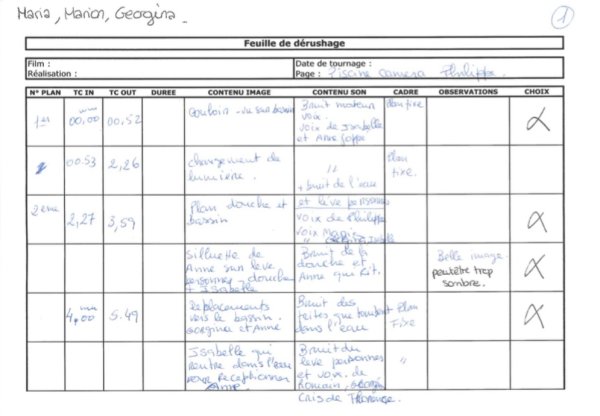 Maria, Marion, Georgina
1
Feuille de dérushage
Film :
Réalisation :
Date de tournage :
Page : Piscine camera Philippe.
N° PLAN TC IN TC OUT DUREE CONTENU IMAGE CONTENU SON CADRE OBSERVATIONS CHOIX
1er 00,00 00,52 Couloir - vue sur bassin Bruit moteur Plan fixe
voix.
voix de Isabelle
et Anne
00.53 2,26 changement de
lumière.
+ bruit de l'eau
et lève personne
Plan
fixe.
2ème 2,27 3,59 Plan douche et
bassin
voix de Philippe
voix
Isabelle
Silluette de
Anne sur lève
personnes douche
+ Isabelle
Bruit de la
douche et
Anne qui rit.
Belle image.
peutêtre trop
sombre.
4,00 5.49 Replacements
vers le bassin.
Georgina et Anne
Bruit des
frites que tombent
dans l'eau
Plan
Fixe
Isabelle qui
rentre dans l'eau
pour receptionner
Anne
Bruit du
lève personnes
et voix de
Romain, Georgina
Cris de Florence.
"